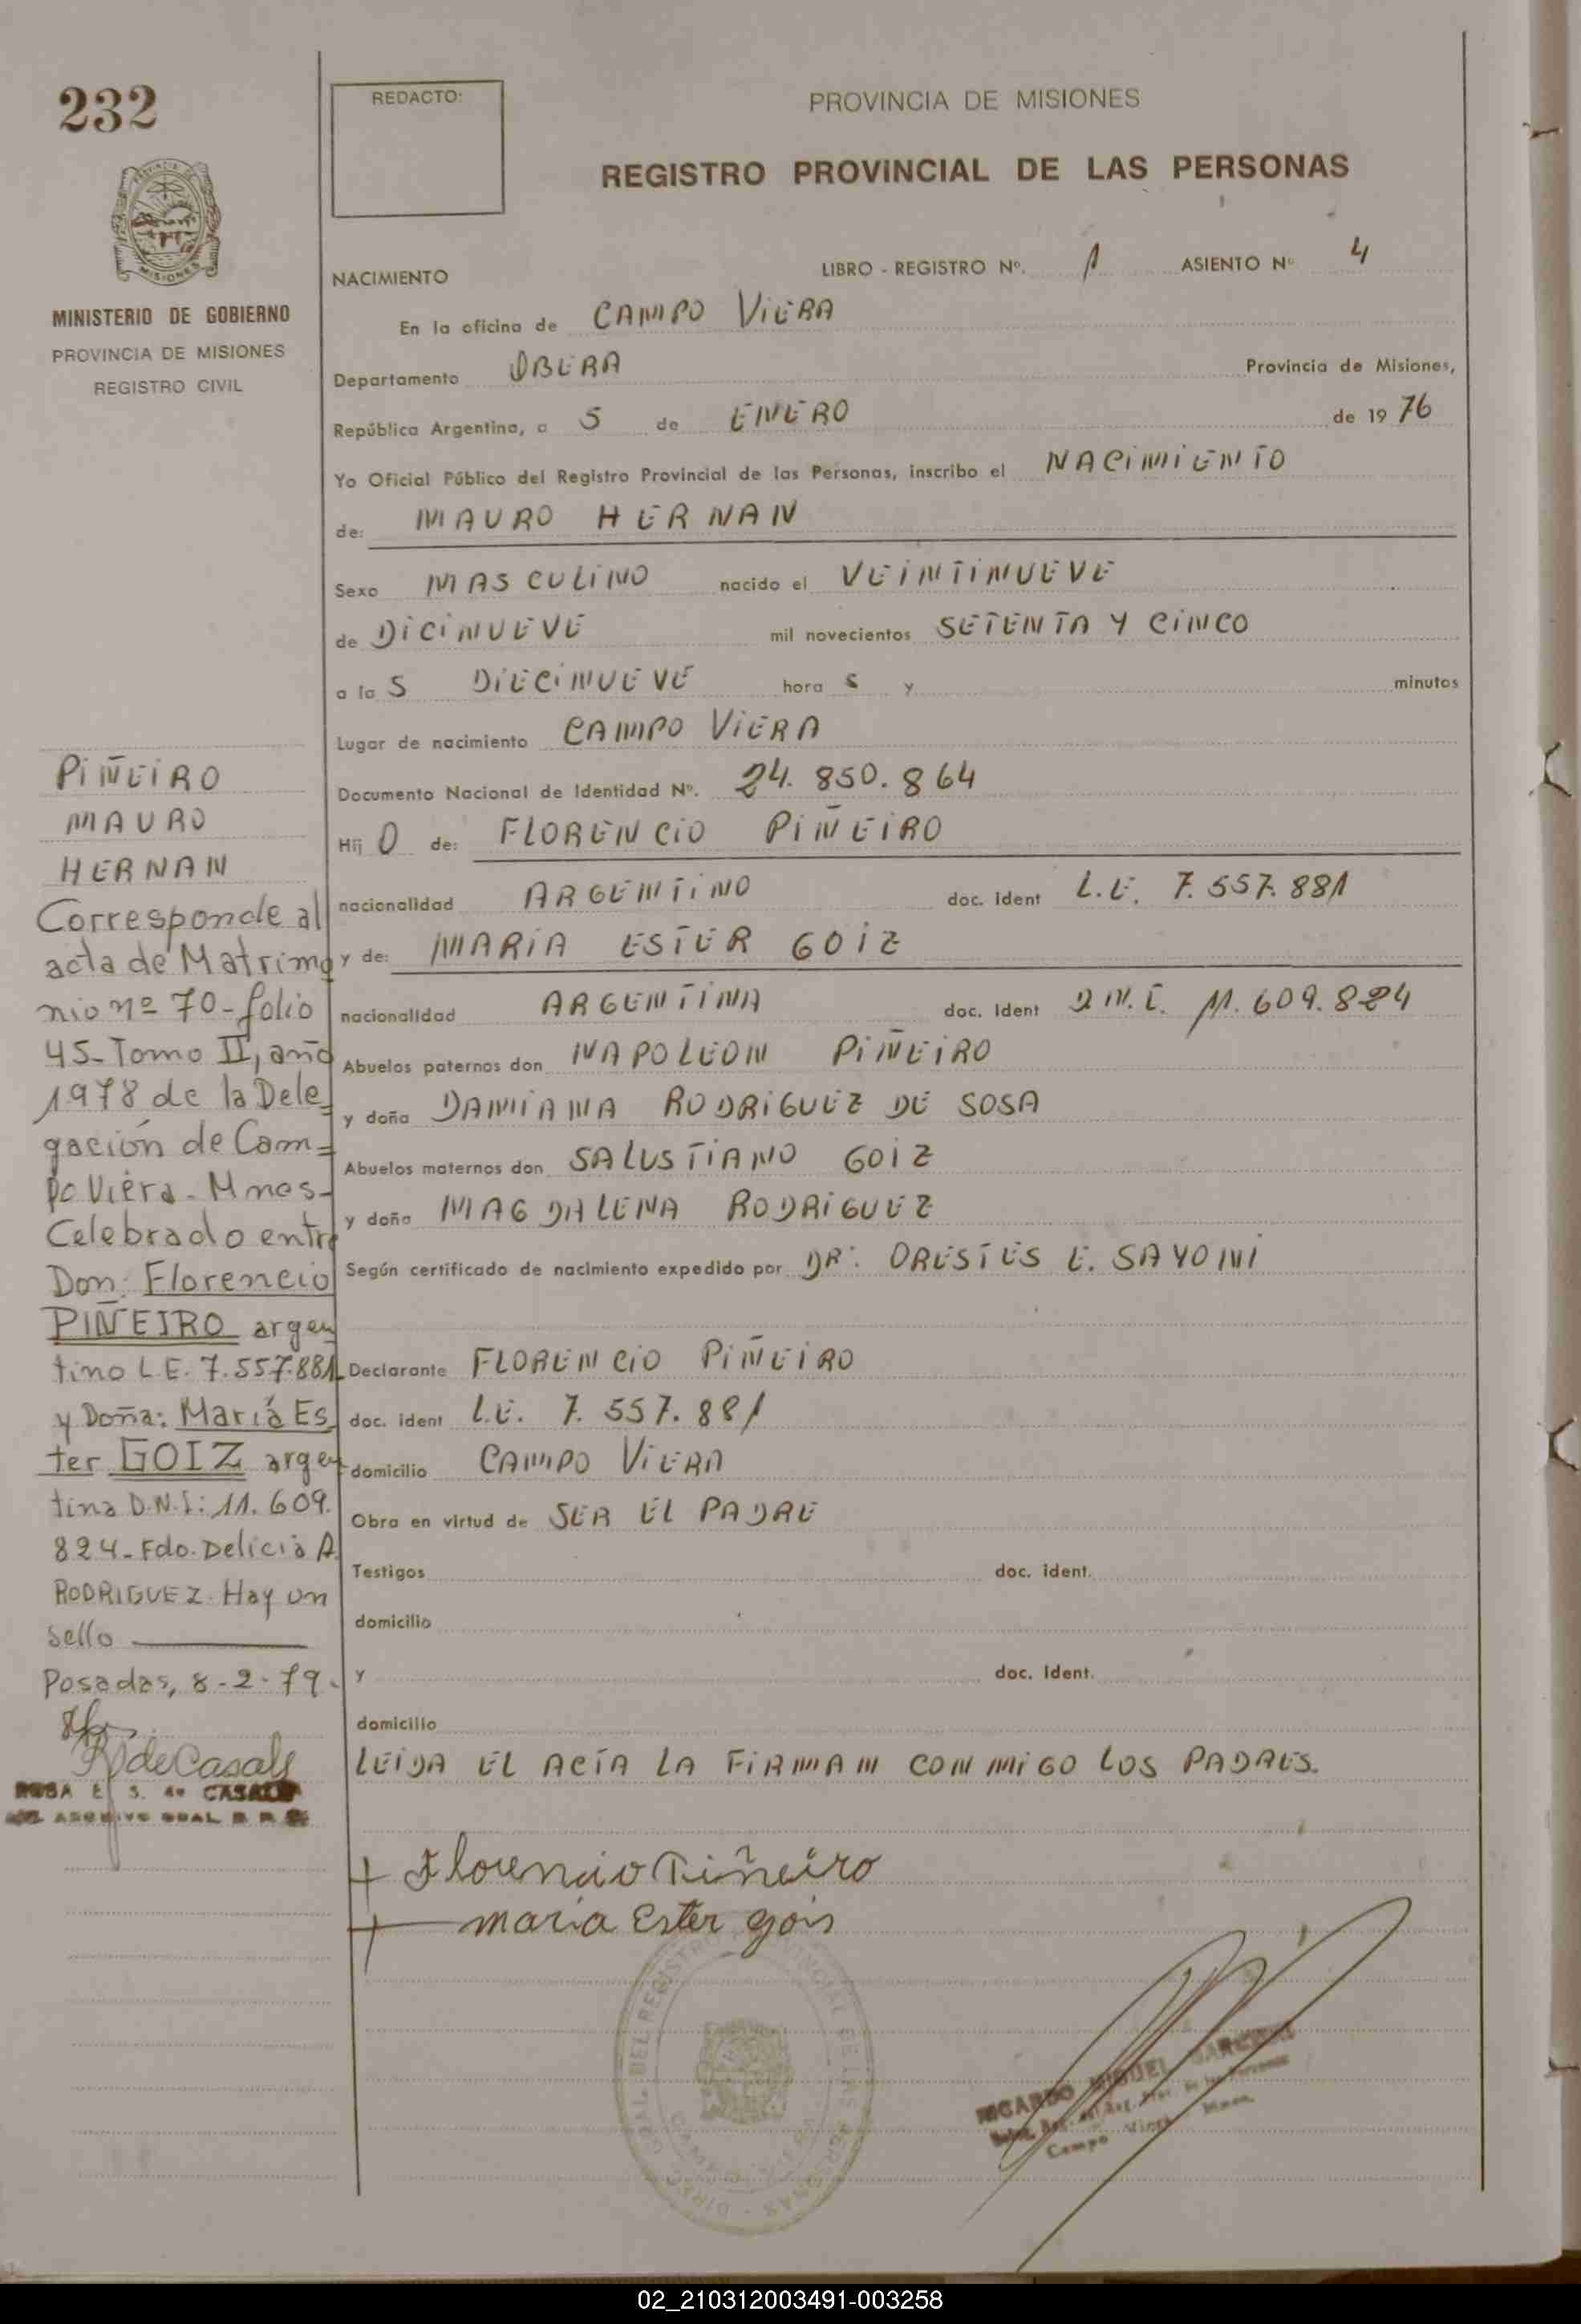 232
REDACTO:
PROVINCIA DE MISIONES
REGISTRO PROVINCIAL DE LAS PERSONAS
MISIONES
MINISTERIO DE GOBIERNO
PROVINCIA DE MISIONES
REGISTRO CIVIL
NACIMIENTO
LIBRO - REGISTRO Nº. 1 ASIENTO Nº 4
En la oficina de CAMPO VIERA
Departamento OBERA Provincia de Misiones,
República Argentina, a 5 de ENERO de 1976
Yo Oficial Público del Registro Provincial de las Personas, inscribo el NACIMIENTO
de: MAURO HERNAN
Sexo MASCULINO nacido el VEINTINUEVE
de DICINUEVE mil novecientos SETENTA Y CINCO
a la S DIECINUEVE hora S y minutos
Lugar de nacimiento CAMPO VIERA
Documento Nacional de Identidad Nº. 24.850.864
Hij O de: FLORENCIO PIÑEIRO
nacionalidad ARGENTINO doc. ident L.E. 7.557.881
y de: MARIA ESTER GOIZ
nacionalidad ARGENTINA doc. ident D.N.I. 11.609.824
Abuelos paternos don NAPOLEON PIÑEIRO
y doña DAMIANA RODRIGUEZ DE SOSA
Abuelos maternos don SALUSTIANO GOIZ
y doña MAGDALENA RODRIGUEZ
Según certificado de nacimiento expedido por DR. ORESTES E. SAYONI
Declarante FLORENCIO PIÑEIRO
doc. ident L.E. 7.557.881
domicilio CAMPO VIERA
Obra en virtud de SER EL PADRE
Testigos doc. ident.
domicilio
y doc. ident.
domicilio
LEIDA EL ACTA LA FIRMAN CONMIGO LOS PADRES.
Florencio Piñeiro
maria Ester gois
PIÑEIRO
MAURO
HERNAN
Corresponde al
acta de Matrimo
nio nº 70-folio
45-Tomo II, año
1978 de la Dele=
gación de Cam=
po Viera-Mnes-
Celebrado entre
Don: Florencio
PIÑEIRO argen
tino L.E. 7.557.881
y Doña: María Es
ter GOIZ argen
tina D.N.I: 11.609.
824-Fdo. Delicia A.
RODRIGUEZ. Hay un
sello
Posadas, 8-2-79.
R de Casals
ROSA E. S. de CASALS
RICARDO MIGUEL
Campo Viera
02_210312003491-003258